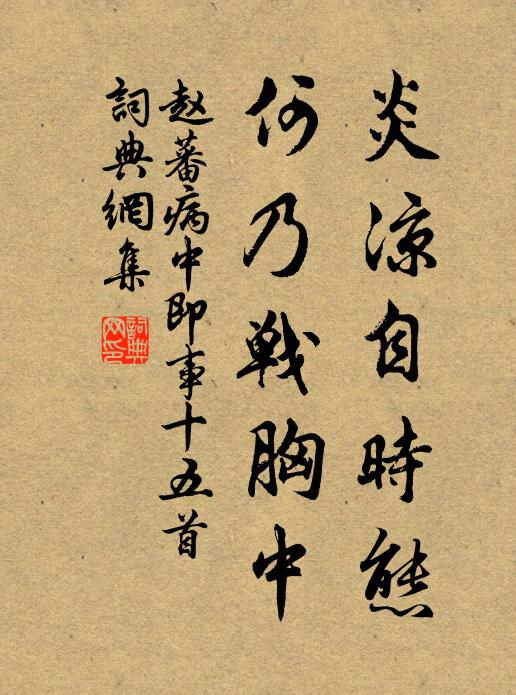 炎涼自時態
何乃戦胸中
赵蕃病中即事十五首
詞典網集
詞典
网印